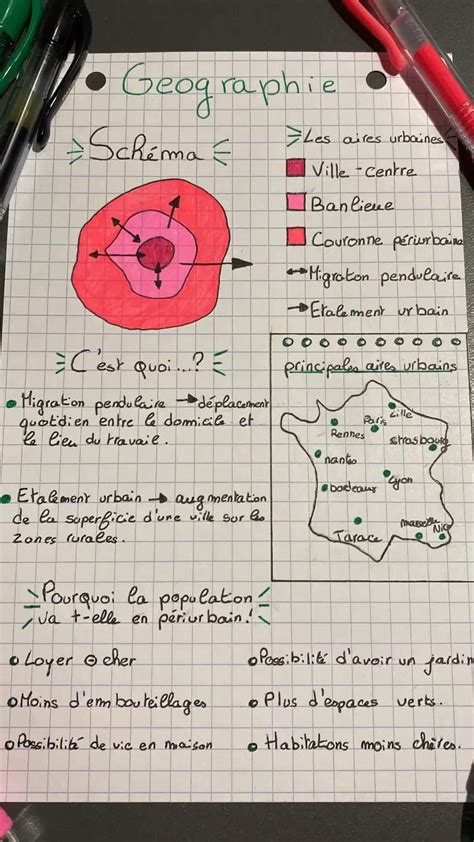 Géographie
Schéma
Les aires urbaines
Ville-centre
Banlieue
Couronne périurbaine
Migration pendulaire
Etalement urbain
C'est quoi...?
Migration pendulaire → déplacement
quotidien entre le domicile et
le lieu du travail.
Etalement urbain → augmentation
de la superficie d'une ville sur les
zones rurales.
principales aires urbains
Lille
Paris
Rennes
strasbourg
nantes
Lyon
bordeaux
marseille
Nice
Tarace
Pourquoi la population
va t-elle en périurbain!
Loyer ⊖ cher
Moins d'embouteillages
Possibilité de vie en maison
Possibilité d'avoir un jardin
Plus d'espaces verts.
Habitations moins chères.